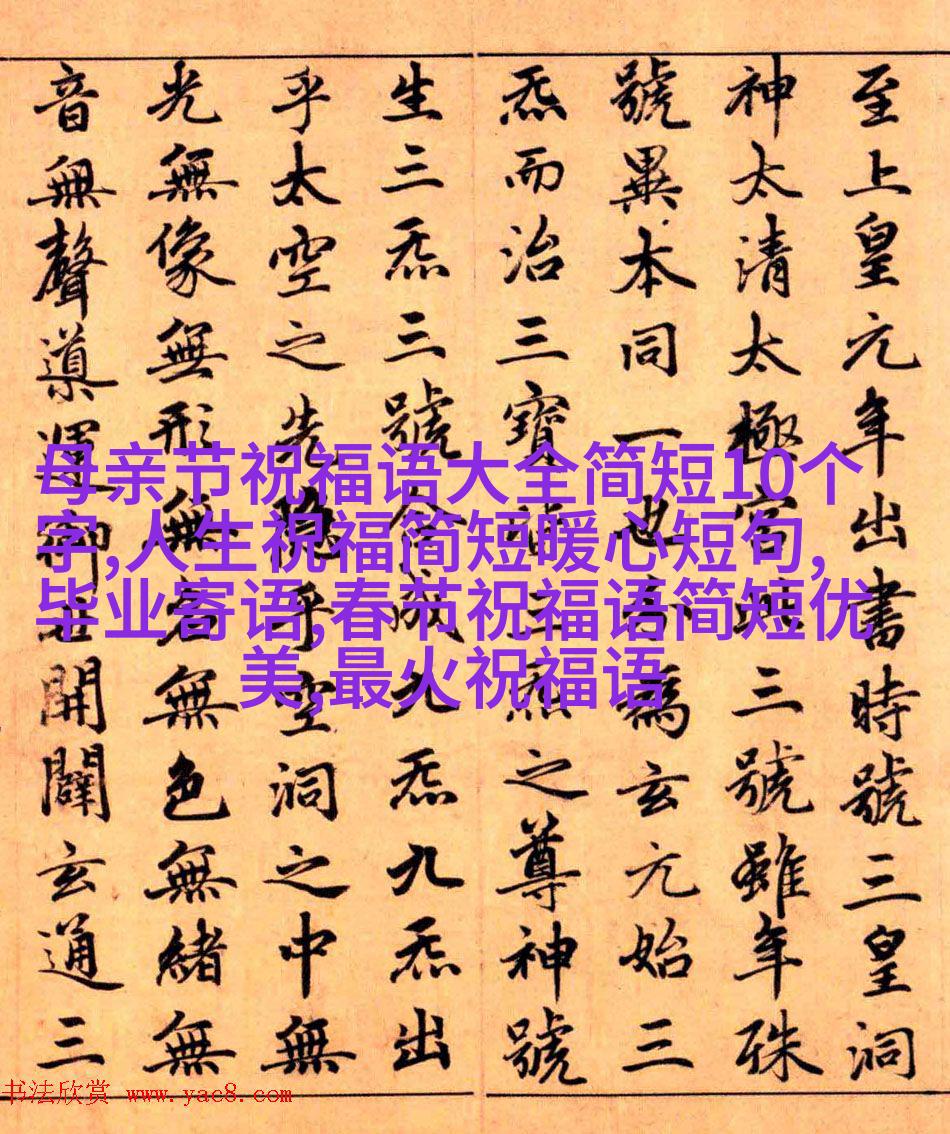 至上皇元年出書時號三皇洞
神太清太極宮此三號雖年殊
號異本同一也分為玄元始三
炁而治三寶皆三炁之尊神號
生三炁三號合成九炁九炁出
乎太空之先隱乎空洞之中無
光無像無形無名無色無緒無
音無聲導運御世開闢玄通三
母亲节祝福语大全简短10个
字,人生祝福简短暖心短句,
毕业寄语,春节祝福语简短优
美,最火祝福语
书法欣赏 www.yac8.com